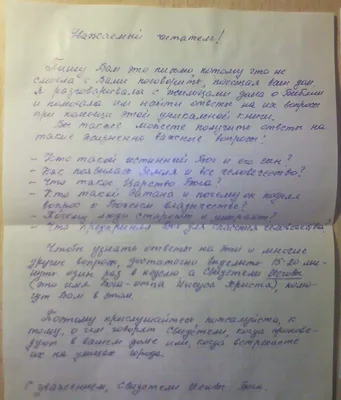 Уважаемый читатель!
Пишу Вам это письмо, потому что не
смогла с Вами поговорить, посещая ваш дом.
Я разговаривала с жильцами дома о Библии
и помогала им найти ответы на их вопросы
при помощи этой уникальной книги.
Вы также можете получить ответы на
такие жизненно важные вопросы:
- Кто такой истинный Бог и его сын?
- Как появилась Земля и все человечество?
- Что такое Царство Бога?
- Кто такой Сатана и почему он поднял
вопрос о Божьем владычестве?
- Почему люди стареют и умирают?
- Что предпринял Бог для спасения человечества?
Чтобы узнать ответы на эти и многие
других вопрос, достаточно выделить 15-20 ми-
нут один раз в неделю а Свидетели Иеговы
(это имя Бога-отца Иисуса Христа), помо-
гут Вам в этом.
Поэтому прислушайтесь пожалуйста, к
тому, о чем говорят Свидетели, когда пропове-
дуют в вашем доме или, когда встречаете
их на улицах города.
С уважением, Свидетели Иеговы Бога.